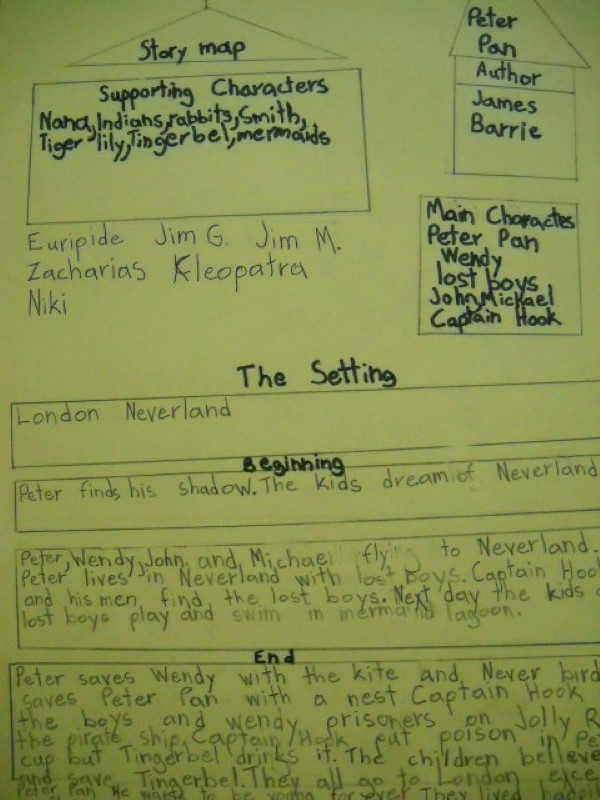 Story map
Supporting Characters
Nana, Indians, rabbits, Smith,
Tiger lily, Tingerbel, mermaids
Peter
Pan
Author
James
Barrie
Euripide Jim G. Jim M.
Zacharias Kleopatra
Niki
Main Charactes
Peter Pan
Wendy
lost boys
John, Michael
Captain Hook
The Setting
London Neverland
Beginning
Peter finds his shadow. The kids dream of Neverland
Peter, Wendy, John, and, Michael fly to Neverland.
Peter lives in Neverland with lost Boys. Captain Hoo
and his men find the lost boys. Next day the kids
lost boys play and swim in mermaind lagoon.
End
Peter saves Wendy with the kite and Never bird
saves Peter Pan with a nest Captain Hook
the boys and wendy prisoners on Jolly R
the pirate ship. Captain Hook put poison in Pe
cup but Tingerbel drinks it. The children believe
and save Tingerbel. They all go to London exce
Peter Pan. He wants to be young for ever They lived happil